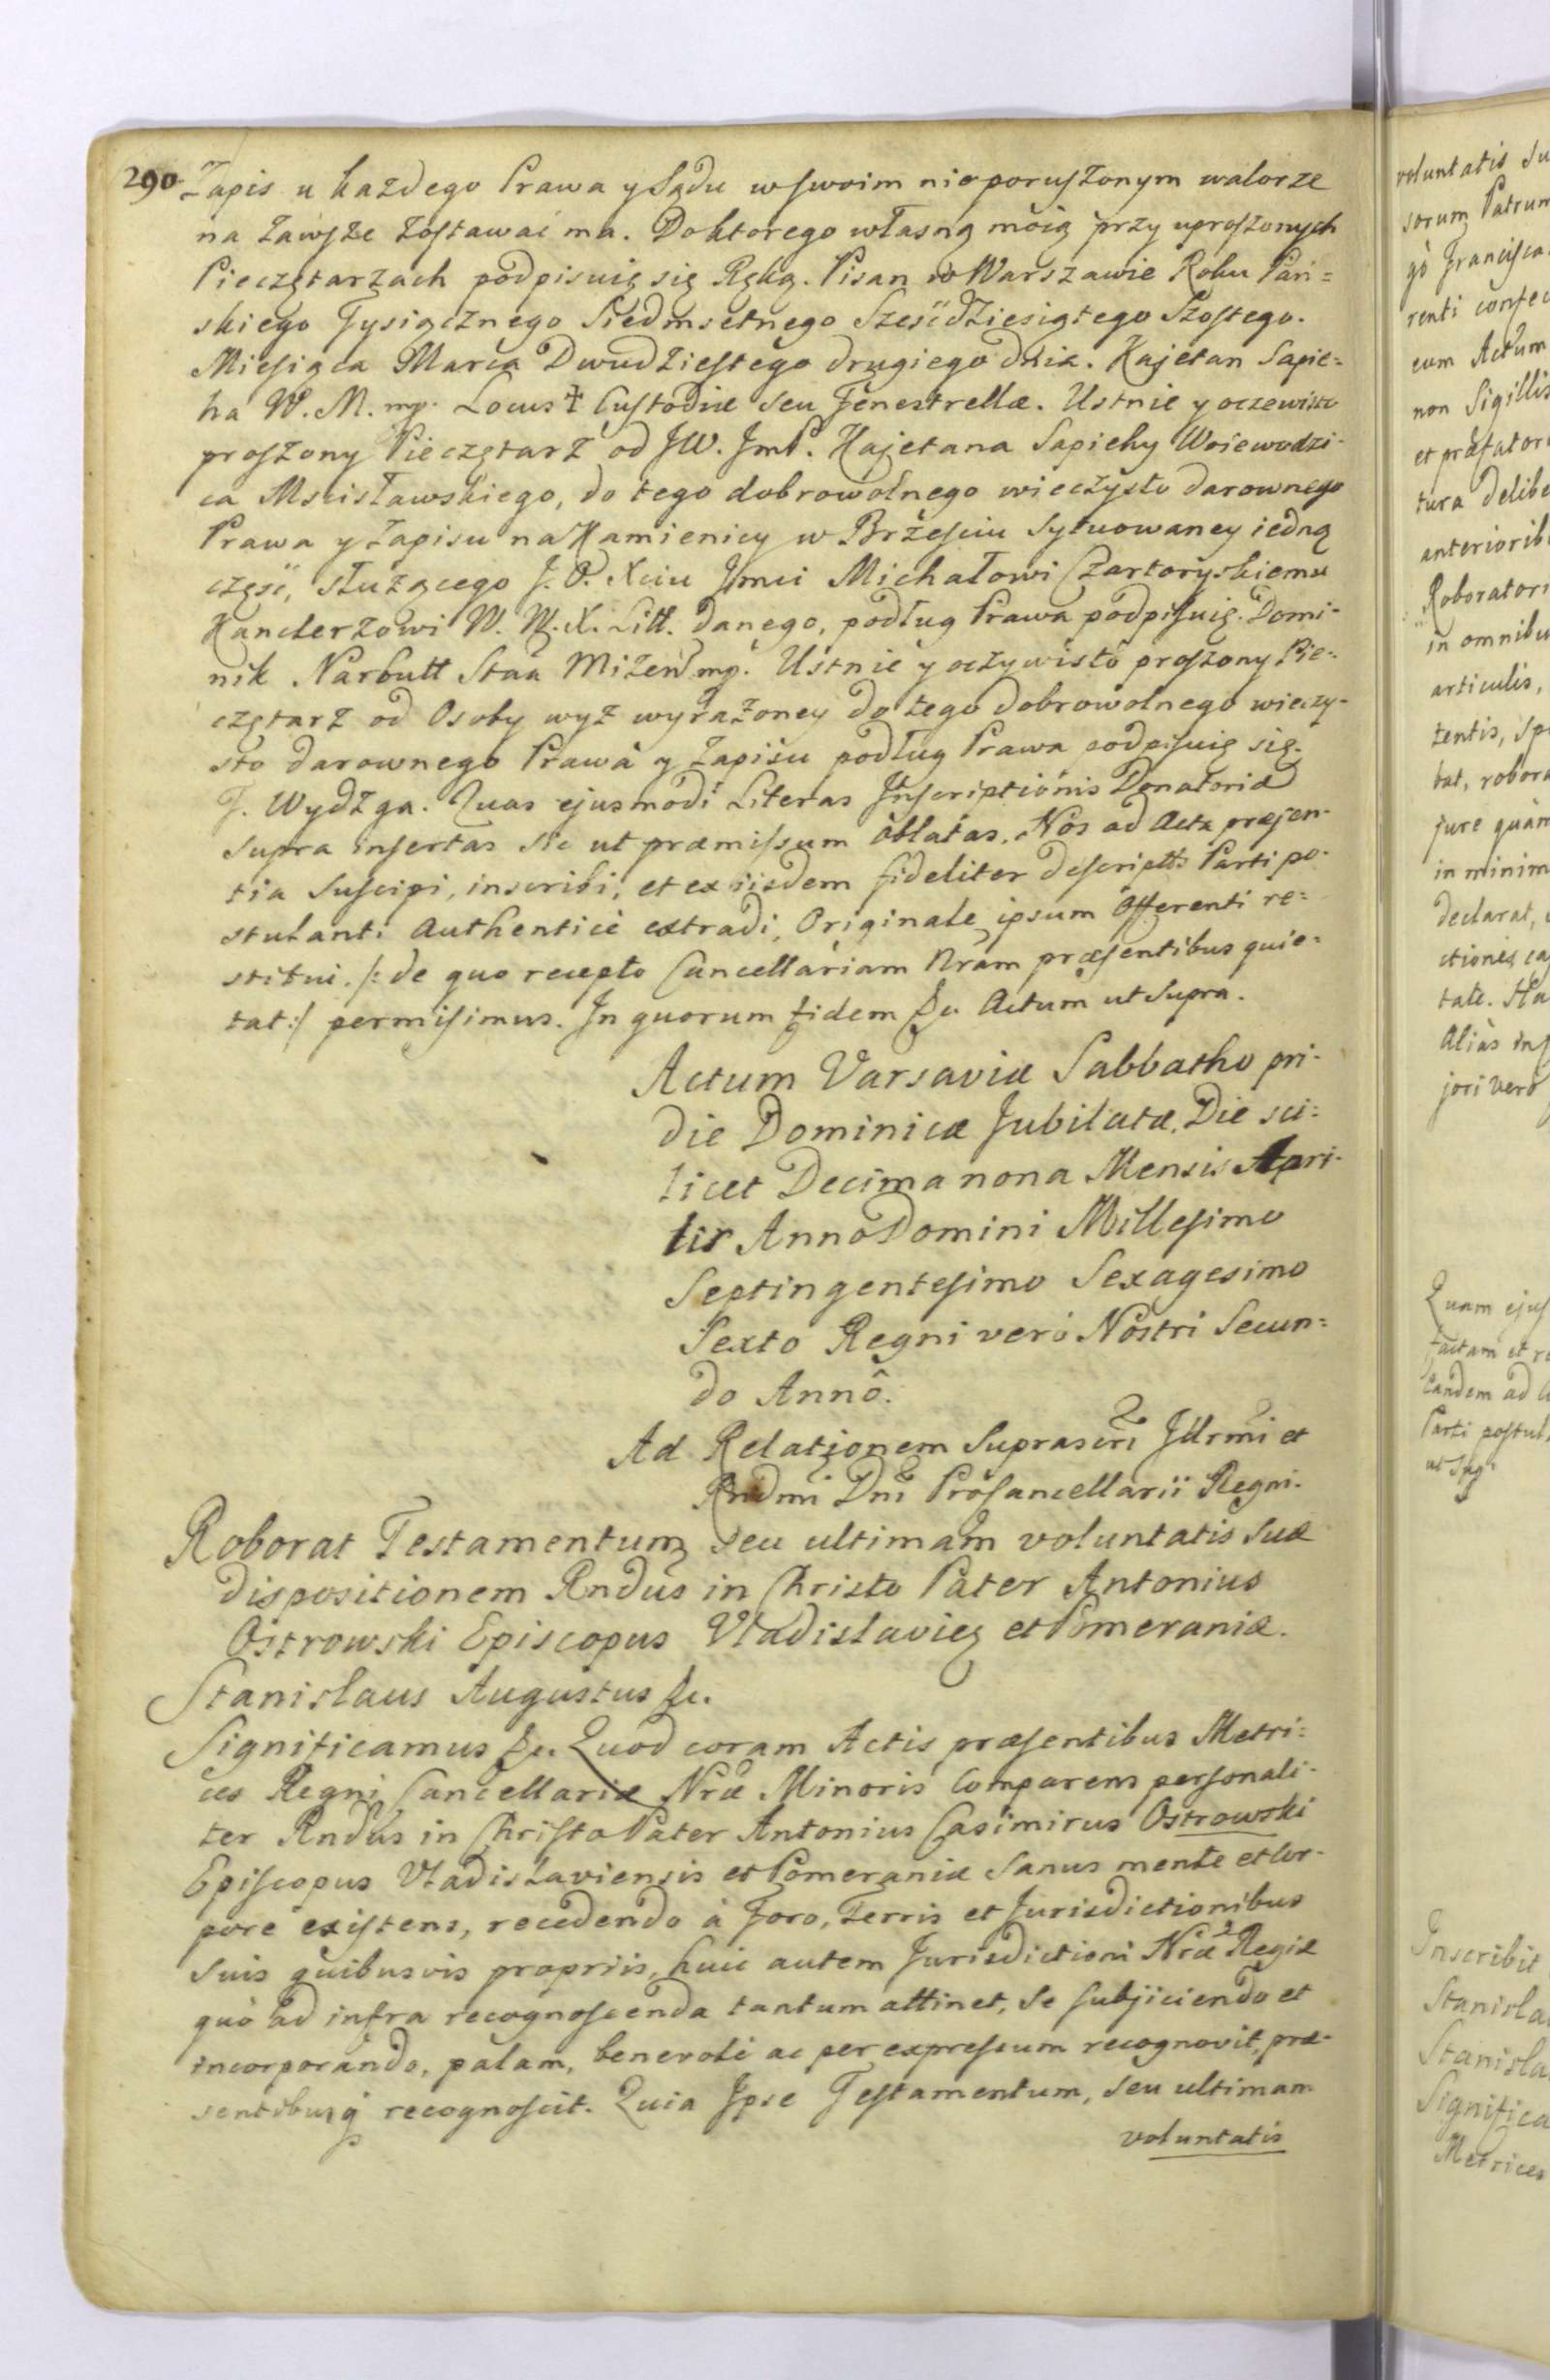 290 Zapis u każdego Prawa y Sądu w swoim nieporuszonym walorze
na zawsze zostawać ma. Do którego własną moią przy uproszonych
Pieczętarzach podpisuię się Ręką. Pisan w Warszawie Roku Pań=
skiego Tysiącznego Siedmsetnego Sześćdziesiątego Szostego.
Miesiąca Marca Dwudziestego drugiego dnia. Kajetan Sapie=
ha W. M. mp. Locus ‡ Custodiæ seu Fenestrellæ. Ustnie y oczewisto
proszony Pieczętarz od JW. JmP. Kajetana Sapiehy Woiewodzi-
ca Mscisławskiego, do tego dobrowolnego wieczysto darownego
Prawa y Zapisu na Kamienicy w Brześciu sytuowaney iedną
część, służącego J. O. Xciu Jmci Michałowi Czartoryskiemu
Kanclerzowi W. W. X. Litt. danego, podług Prawa podpisuię. Domi-
nik Narbutt Staa Mizen̄ mp. Ustnie y oczywisto proszony Pie=
czętarz od Osoby wyż wyrażoney do tego dobrowolnego wieczy-
sto darownego Prawa y Zapisu podług Prawa podpisuię się.
F. Wydzga. Quas ejusmodi Literas Inscriptionis Donatoriæ
supra insertas sic ut præmissum oblatas, Nos ad Acta præsen-
tia suscipi, inscribi, et ex iisdem fideliter descriptas Parti po-
stulanti Authenticè extradi, Originale ipsum Offerenti re=
stitui. /: de quo recepto Cancellariam Nram præsentibus quie=
tat :/ permisimus. In quorum fidem &c. Actum ut supra.
Actum Varsaviæ Sabbatho pri-
die Dominicæ Jubilatæ, Die sci=
licet Decima nona Mensis Apri-
lis Anno Domini Millesimo
Septingentesimo Sexagesimo
Sexto Regni verò Nostri Secun=
do Annô.
Ad Relationem Suprascri Jllrmi et
Rndmi Dni Procancellarii Regni.
Roborat Testamentum seu ultimam voluntatis suæ
dispositionem Rndus in Christo Pater Antonius
Ostrowski Episcopus Vladislavien et Pomeraniæ.
Stanislaus Augustus &c.
Significamus &c. Quod coram Actis præsentibus Metri=
ces Regni Cancellariæ Nræ Minoris Comparens personali-
ter Rndus in Christo Pater Antonius Casimirus Ostrowski
Episcopus Vladislaviensis et Pomeraniæ sanus mente et cor-
pore existens, recedendo à Foro, Terris et Jurisdictionibus
suis quibusvis propriis, huic autem Jurisdictioni Nræ Regiæ
quò ad infra recognoscenda tantum attinet, se subjiciendo et
incorporando, palam, benevolè ac per expressum recognovit, præ-
sentibusq̃ recognoscit. Quia Ipse Testamentum, seu ultimam
voluntatis
voluntatis su
sorum Patrum
gò Francisca
renti confec
eum Actum
non Sigillis
et præfator
tura delibe
anteriorib
Roborator
in omnibu
articulis,
tentis, sp
bat, robora
jure quàm
in minim
declarat,
ctiones ca
tate. Ha
Aliàs in
jori verò
Quam ejus
factam et r
eandem ad A
Parti postul
ut sup
Inscribit
Stanisla
Stanisla
Significa
Metrices